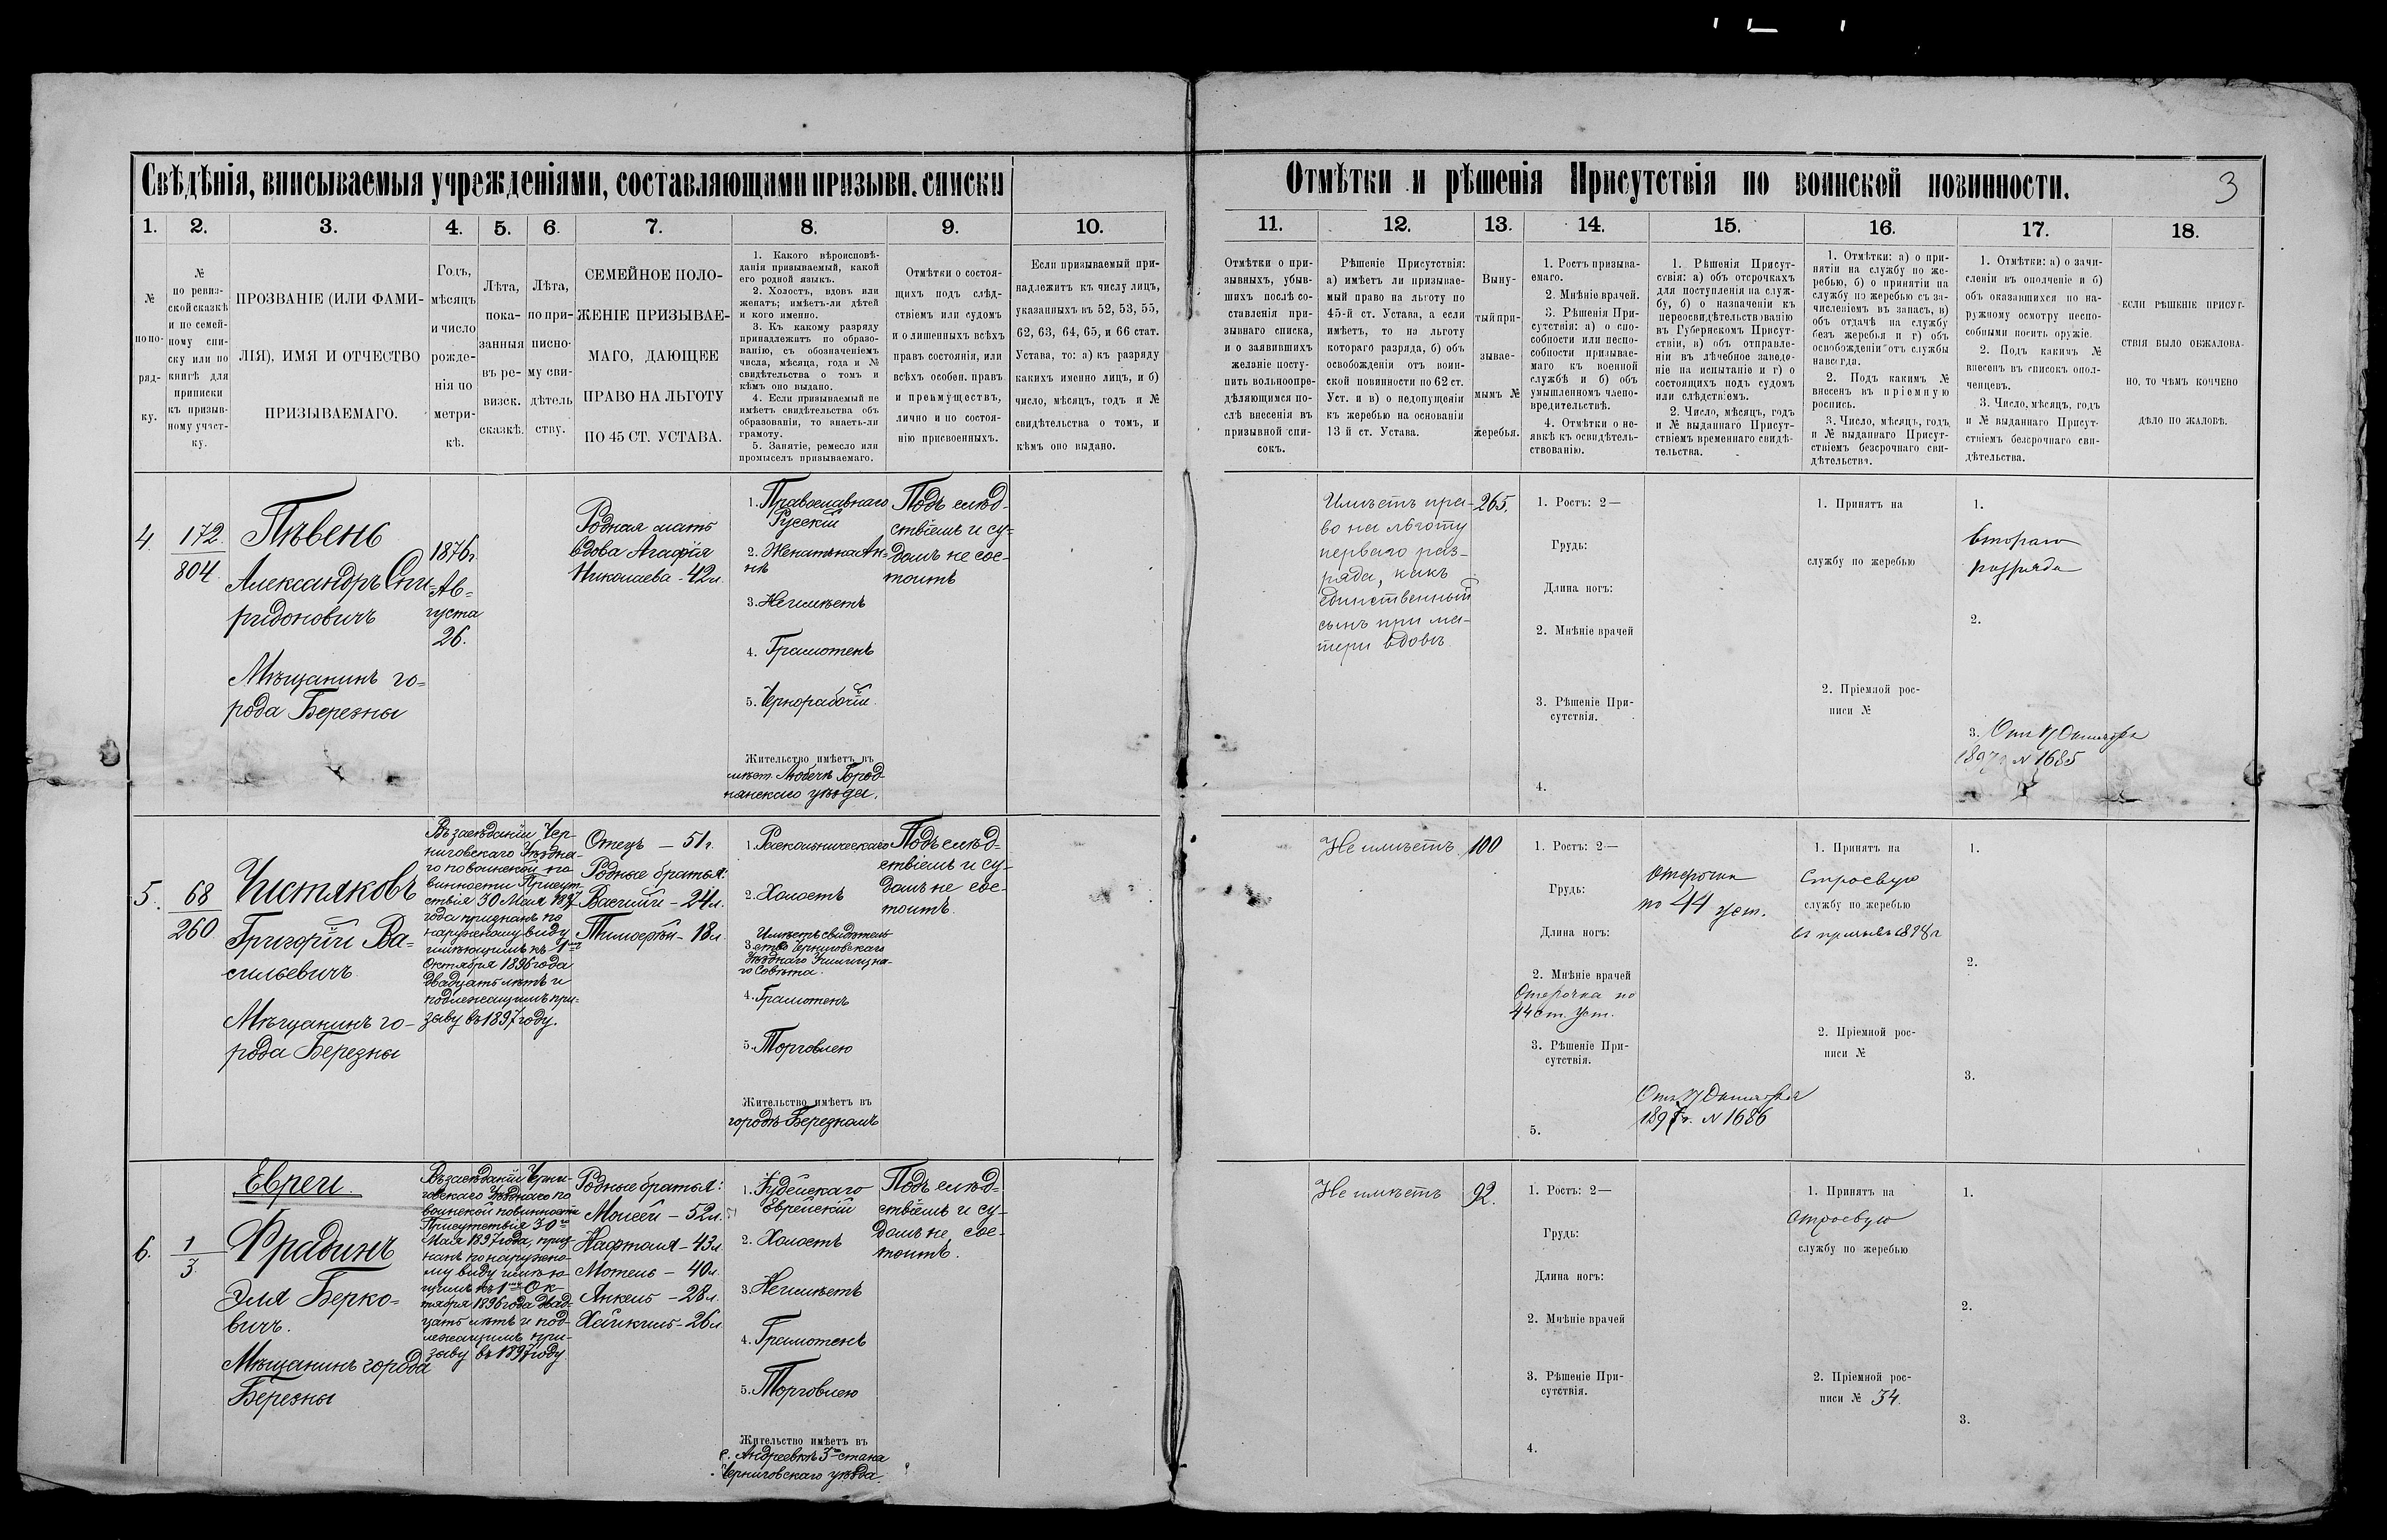 Свѣдѣнія, вписываемыя учрежденіями, составляющими призывн. списки
Отмѣтки и рѣшенія Присутствія по воинской повинности.
3
1.
2.
3.
4.
5.
6.
7.
8.
9.
10.
11.
12.
13.
14.
15.
16.
17.
18.
№
по по-
ряд-
ку.
№
по ревиз-
ской сказкѣ
и по семей-
ному спи-
ску или по
книгѣ для
приписки
къ призыв-
ному участ-
ку.
ПРОЗВАНІЕ (ИЛИ ФАМИ-
ЛІЯ), ИМЯ И ОТЧЕСТВО
ПРИЗЫВАЕМАГО.
Годъ,
мѣсяцъ
и число
рожде-
нія по
метри-
кѣ.
Лѣта,
пока-
занныя
въ ре-
визск.
сказкѣ.
Лѣта,
по при-
писно-
му сви-
дѣтель
ству.
СЕМЕЙНОЕ ПОЛО-
ЖЕНІЕ ПРИЗЫВАЕ-
МАГО, ДАЮЩЕЕ
ПРАВО НА ЛЬГОТУ
ПО 45 СТ. УСТАВА.
1. Какого вѣроисповѣ-
данія призываемый, какой
его родной языкъ.
2. Холостъ, вдовъ или
женатъ; имѣетъ-ли дѣтей
и кого именно.
3. Къ какому разряду
принадлежитъ по образо-
ванію, съ обозначеніемъ
числа, мѣсяца, года и №
свидѣтельства о томъ и
кѣмъ оно выдано.
4. Если призываемый не
имѣетъ свидѣтельства объ
образованіи, то знаетъ-ли
грамоту.
5. Занятіе, ремесло или
промыселъ призываемаго.
Отмѣтки о состоя-
щихъ подъ слѣд-
ствіемъ или судомъ
и о лишенныхъ всѣхъ
правъ состоянія, или
всѣхъ особен. правъ
и преимуществъ,
лично и по состоя-
нію присвоенныхъ.
Если призываемый при-
надлежитъ къ числу лицъ,
указанныхъ въ 52, 53, 55,
62, 63, 64, 65, и 66 стат.
Устава, то: а) къ разряду
какихъ именно лицъ, и б)
число, мѣсяцъ, годъ и №
свидѣтельства о томъ, и
кѣмъ оно выдано.
Отмѣтки о при-
зывныхъ, убыв-
шихъ послѣ со-
ставленія при-
зывнаго списка,
и о заявившихъ
желаніе посту-
пить вольноопре-
дѣляющимся по-
слѣ внесенія въ
призывной спи-
сокъ.
Рѣшеніе Присутствія:
а) имѣетъ ли призывае-
мый право на льготу по
45-й ст. Устава, а если
имѣетъ, то на льготу
котораго разряда, б) объ
освобожденіи отъ воин-
ской повинности по 62 ст.
Уст. и в) о недопущеніи
къ жеребью на основаніи
13 й ст. Устава.
Выну-
тый при-
зывае-
мымъ №
жеребья.
1. Ростъ призыва-
емаго.
2. Мнѣніе врачей.
3. Рѣшенія При-
сутствія: а) о спо-
собности или неспо-
собности призывае-
маго къ военной
службѣ и б) объ
умышленномъ члено-
вредительствѣ.
4. Отмѣтки о не-
явкѣ къ освидѣтель-
ствованію.
1. Рѣшенія Присут-
ствія: а) объ отсрочкахъ
для поступленія на служ-
бу, б) о назначеніи къ
переосвидѣтельствованію
въ Губернскомъ Присут-
ствіи, в) объ отправле-
ніи въ лѣчебное заведе-
ніе на испытаніе и г) о
состоящихъ подъ судомъ
или слѣдствіемъ.
2. Число, мѣсяцъ, годъ
и № выданнаго Присут-
ствіемъ временнаго свидѣ-
тельства.
1. Отмѣтки: а) о при-
нятіи на службу по же-
ребью, б) о принятіи на
службу по жеребью съ за-
численіемъ въ запасъ, в)
объ отдачѣ на службу
безъ жеребья и г) объ
освобожденіи отъ службы
навсегда.
2. Подъ какимъ №
внесенъ въ пріемную
роспись.
3. Число, мѣсяцъ, годъ
и № выданнаго Присут-
ствіемъ безсрочнаго сви-
дѣтельства.
1. Отмѣтки: а) о зачи-
сленіи въ ополченіе и б)
объ оказавшихся по на-
ружному осмотру неспо-
собными носить оружіе.
2. Подъ какимъ №
внесенъ въ списокъ опол-
ченцевъ.
3. Число, мѣсяцъ, годъ
и № выданнаго Присут-
ствіемъ безсрочнаго сви-
дѣтельства.
ЕСЛИ РѢШЕНІЕ ПРИСУТ-
СТВІЯ БЫЛО ОБЖАЛОВА-
НО, ТО ЧѢМЪ КОНЧЕНО
ДѢЛО ПО ЖАЛОБѢ.
4.
172.
804.
Пѣвень
Александръ Спи-
ридоновичъ
Мѣщанинъ го-
рода Березны
1876 г.
Ав-
густа
26.
Родная мать
вдова Агафія
Николаева - 42 л.
1. Православнаго
Русскій
2. Женатъ на Ан-
нѣ
3. Неимѣетъ
4. Грамотенъ
5. Чернорабочій.
Жительство имѣетъ въ
мѣст. Любечѣ Город-
нянскаго уѣзда.
Подъ слѣд-
ствіемъ и су-
домъ не сос-
тоитъ
Имѣетъ пра-
во на льготу
перваго раз-
ряда, какъ
единственный
сынъ при ма-
тери вдовѣ
265.
1. Ростъ: 2—
Грудь:
Длина ногъ:
2. Мнѣніе врачей
3. Рѣшеніе При-
сутствія.
4.
1. Принятъ на
службу по жеребью
2. Пріемной рос-
писи №
1.
втораго
разряда
2.
3. Отъ 17 Октября
1897 г. № 1685
5.
68
260
Чистяковъ
Григорій Ва-
сильевичъ
Мѣщанинъ го-
рода Березны
Въ засѣданіи Чер-
ниговскаго Уѣздна-
го по воинской по-
винности Присут-
ствія 30 Мая 1897
года признанъ по
наружному виду
имѣющимъ къ 1му
Октября 1896 года
двадцать лѣтъ и
подлежащимъ при-
зыву въ 1897 году.
Отецъ — 51 г.
Родные братья:
Василій - 24 л.
Тимофей - 18 л.
1. Раскольническаго
2. Холостъ
3. Имѣетъ свидѣтель-
ство Черниговскаго
Уѣзднаго Училищна-
го Совѣта.
4. Грамотенъ
5. Торговлею
Жительство имѣетъ въ
городѣ Березномъ
Подъ слѣд-
ствіемъ и су-
домъ не сос-
тоитъ.
Не имѣетъ.
100
1. Ростъ: 2—
Грудь:
Длина ногъ:
2. Мнѣніе врачей
Отсрочка по
44 ст. Уст.
3. Рѣшеніе При-
сутствія.
5.
Отсрочка
по 44 уст.
Отъ 17 Октября
1897 г. № 1686
1. Принятъ на
Строевую
службу по жеребью
въ призывъ 1898 г
2. Пріемной рос-
писи №
1.
2.
3.
Евреи.
6.
1
3
Фрадинъ
Эля Берко-
вичъ.
Мѣщанинъ города
Березны
Въ засѣданіи Черни-
говскаго Уѣзднаго по
воинской повинности
Присутствія 30го
Мая 1897 года, приз-
нанъ по наружно-
му виду имѣю-
щимъ къ 1му Ок-
тября 1896 года двад-
цать лѣтъ и под-
лежащимъ при-
зыву въ 1897 году.
Родные братья:
Моисей - 52 л.
Нафтоля - 43 л.
Мотель - 40 л.
Янкель - 28 л.
Хайкель - 26 л.
1. Іудейскаго
Еврейскій
2. Холостъ
3. Неимѣетъ
4. Грамотенъ
5. Торговлею
Жительство имѣетъ въ
с. Андреевкѣ 3го стана
Черниговскаго уѣзда.
Подъ слѣд-
ствіемъ и су-
домъ не сос-
тоитъ.
Не имѣетъ
92.
1. Ростъ: 2—
Грудь:
Длина ногъ:
2. Мнѣніе врачей
3. Рѣшеніе При-
сутствія.
4.
1. Принятъ на
строевую
службу по жеребью
2. Пріемной рос-
писи № 34.
1.
2.
3.